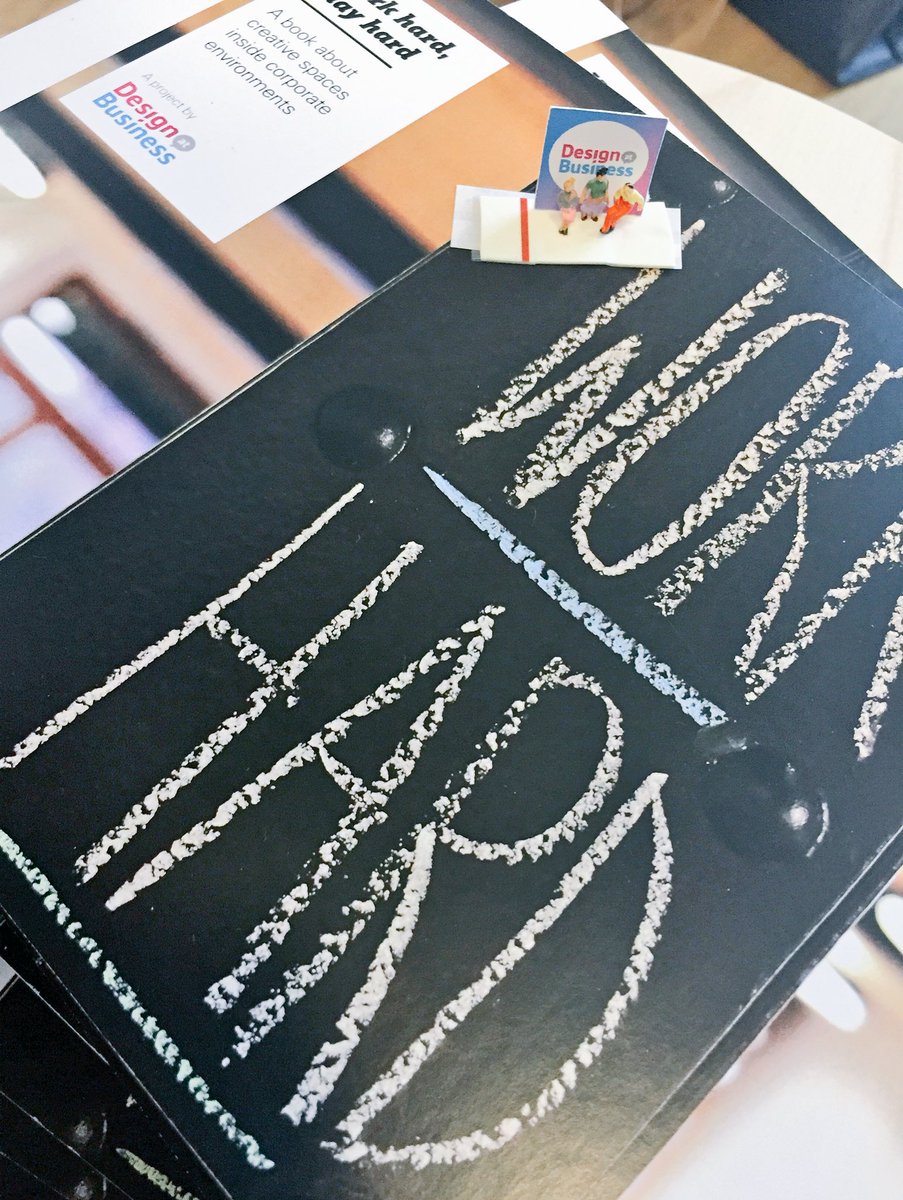 rk hard,
ay hard
A book about
creative spaces
inside corporate
environments
A project by
Design at
Business
Design at
Business
WORK
HARD